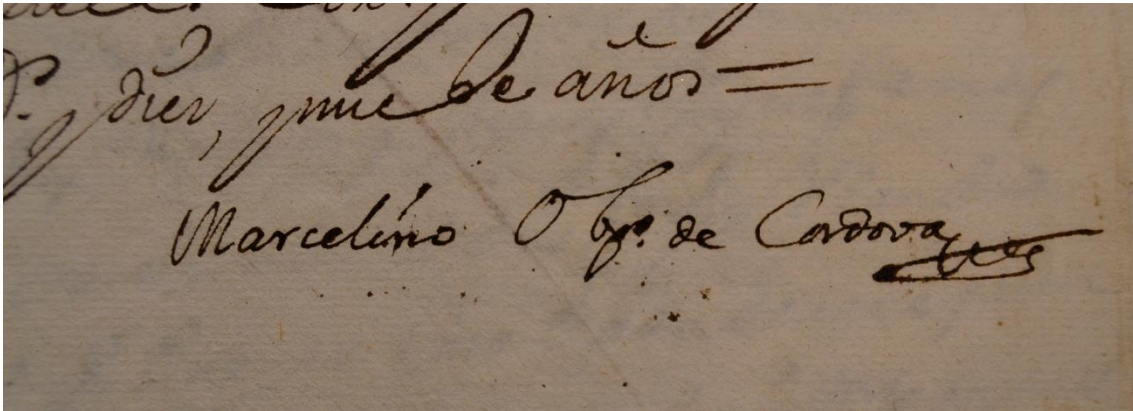 diez, y nueve años =
Marcelino Obpo. de Cordova